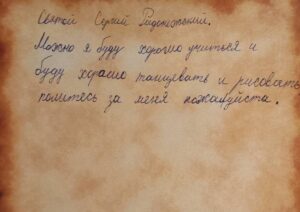 Святой Сергий Радонежский.
Можно я буду хорошо учиться и
буду хорошо танцевать и рисовать
помитесь за меня пожалуйста.